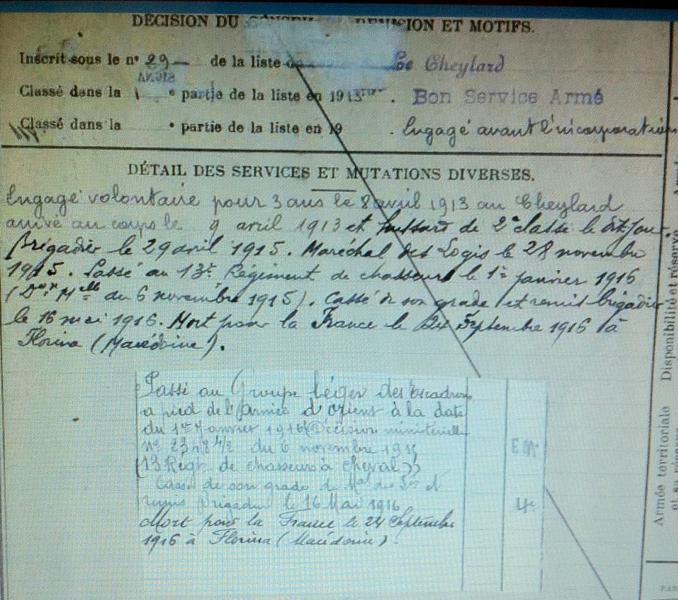 DÉCISION DU CONSEIL DE RÉVISION ET MOTIFS.
Inscrit sous le n° 29 de la liste de Le Cheylard
Classé dans la 1 e partie de la liste en 1913. Bon Service Armé
Classé dans la e partie de la liste en 19 . Engagé avant l'incorporation
DÉTAIL DES SERVICES ET MUTATIONS DIVERSES.
Engagé volontaire pour 3 ans le 8 avril 1913 au Cheylard
arrivé au corps le 9 avril 1913 et hussard de 2e classe le dit jour.
Brigadier le 29 avril 1915. Maréchal des Logis le 28 novembre
1915. Passé au 13e Régiment de chasseurs le 1er janvier 1916
(Don Mlle du 6 novembre 1915). Cassé de son grade et remis brigadier
le 16 mai 1916. Mort pour la France le 24 Septembre 1916 à
Florina (Macédoine).
Passé au Groupe léger des Escadrons
à pied de l'Armée d'Orient à la date
du 1er Janvier 1916 (Décision ministérielle
n° 23484/2 du 6 novembre 1915
(13 Régt. de chasseurs à cheval))
Cassé de son grade de Mal des Gis et
remis Brigadier le 16 Mai 1916
Mort pour la France le 24 Septembre
1916 à Florina (Macédoine).
EM
4e
Disponibilité et réserve
Armée territoriale